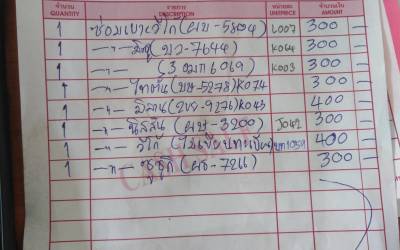 จำนวน QUANTITY รายการ DESCRIPTION หน่วยละ UNIT PRICE จำนวนเงิน AMOUNT
1 ซ่อมเบาะวีโก้ (ผข-5804) L007 300 —
1 —〃— (บว-7644) K064 300 —
1 —〃— (3 ฒก 6069) K003 300 —
1 —〃— ไททัน (บน-5278) K074 300 —
1 —〃— (2ขช-9276) K043 400 —
1 —〃— นิสสัน (ผข-3200) J042 300 —
1 —〃— วีโก้ (ไม่เขียนทะเบียน) 400 —
1 —〃— ซูซุกิ (ผธ-7266) 300 —